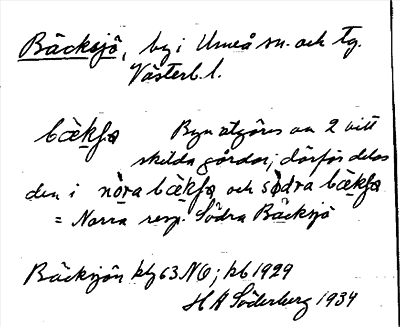 Bäcksjö, by i Umeå sn. och tg.
Västerb. l.
bæ̀kʃə Byn utgöres av 2 vitt
skilda gårdar; därför delas
den i nòra bæ̀kʃə och sö̀dra bæ̀kʃə
= Norra resp. Södra Bäcksjö
Bäcksjön kbl 63 NO; kb 1929
H A Söderberg 1934